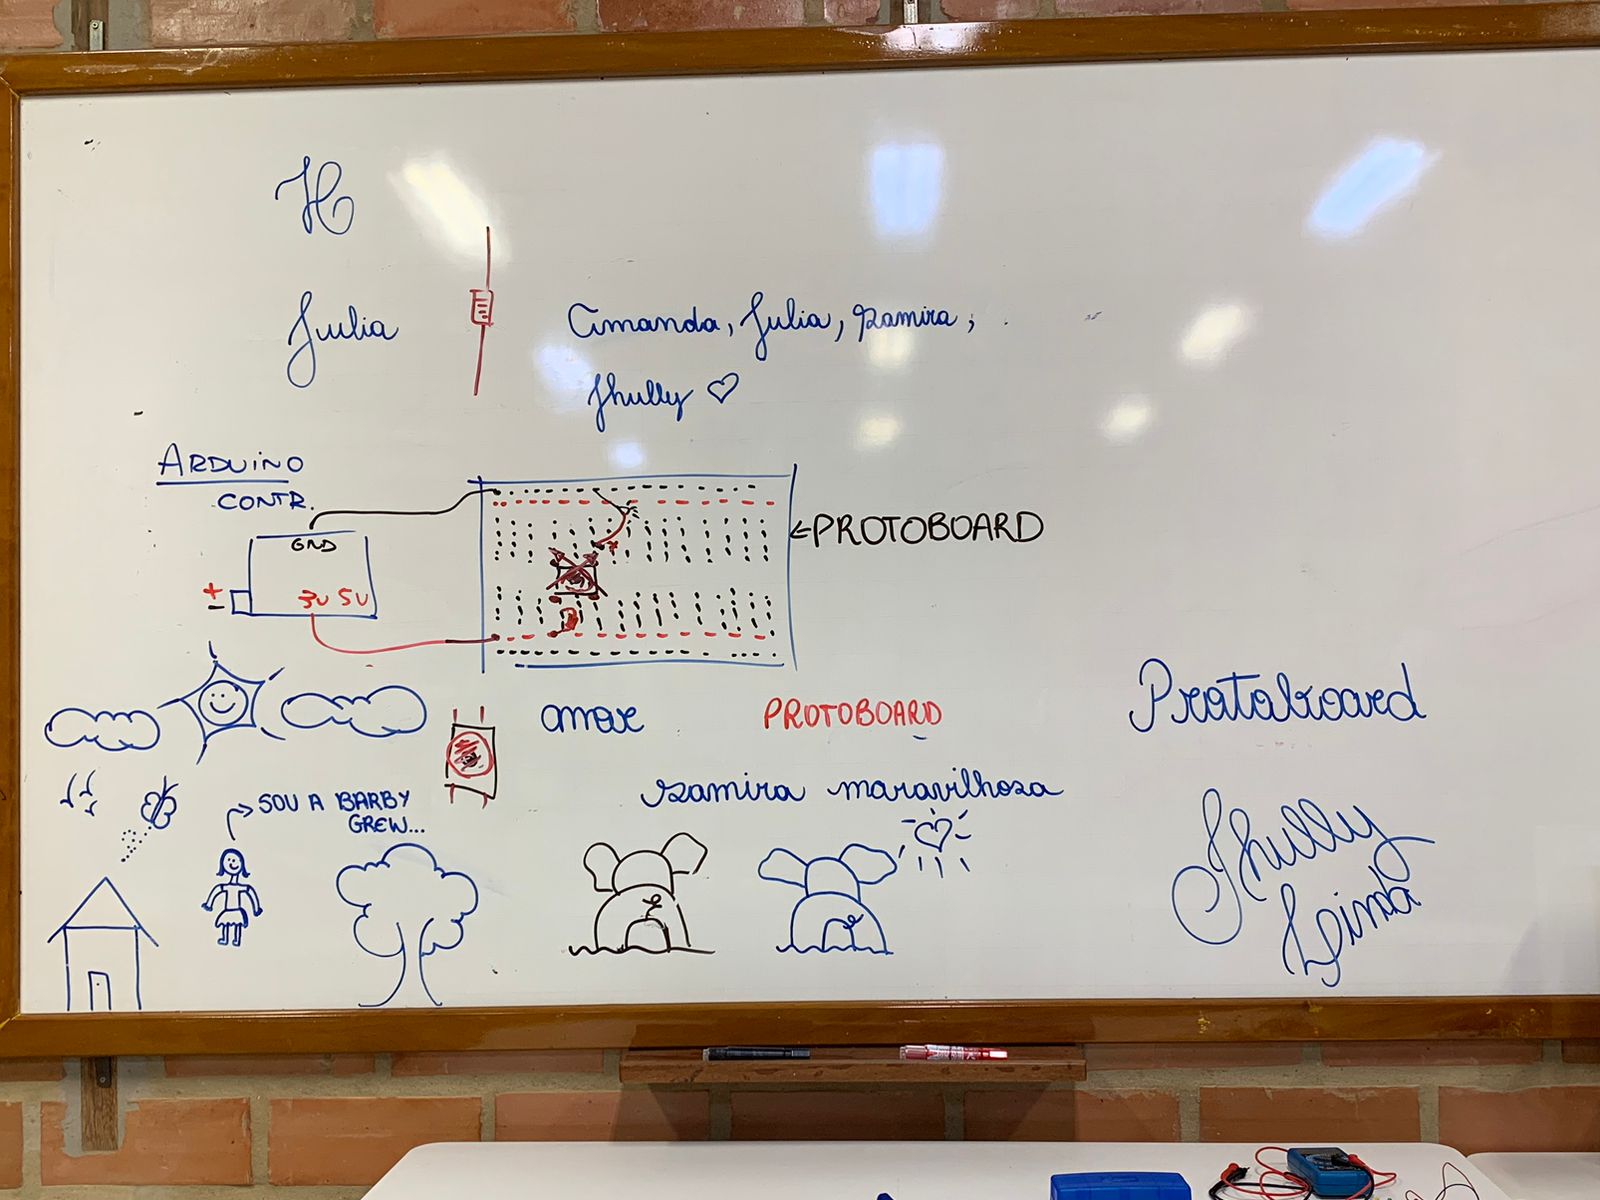 H
Julia
Amanda, Julia, Ramira,
Jhully ♡
ARDUINO
CONTR.
GND
+
-
3V 5V
←PROTOBOARD
amor
PROTOBOARD
Protoboard
→ SOU A BARBY
GREW...
Ramira maravilhosa
Jhully
Linda